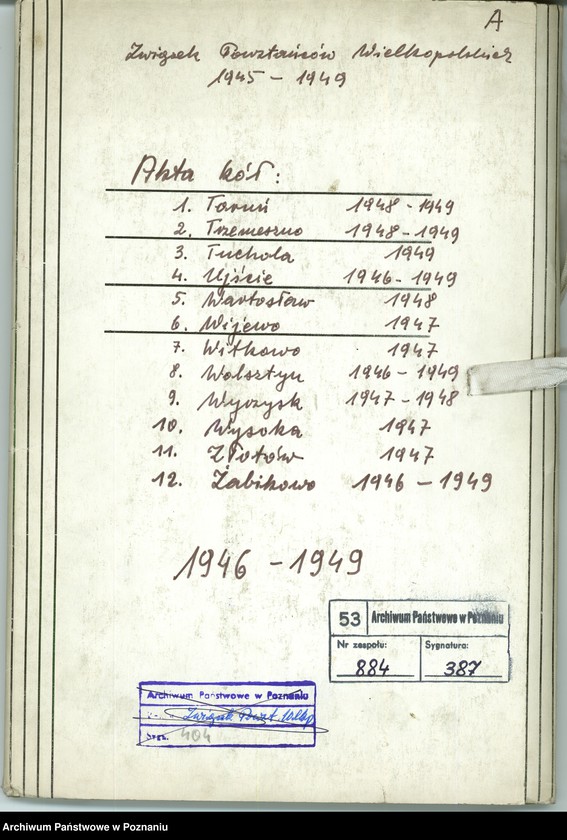 A
Związek Powstańców Wielkopolskich
1945 - 1949
Akta kół:
1. Toruń 1948 - 1949
2. Trzemeszno 1948 - 1949
3. Tuchola 1949
4. Ujście 1946 - 1949
5. Wartosław 1948
6. Wijewo 1947
7. Witkowo 1947
8. Wolsztyn 1946 - 1949
9. Wyrzysk 1947 - 1948
10. Wysoka 1947
11. Złotów 1947
12. Żabikowo 1946 - 1949
1946 - 1949
53 Archiwum Państwowe w Poznaniu
Nr zespołu: Sygnatura:
884 387
Archiwum Państwowe w Poznaniu
Związek Powst. Wlkp
Sygn. 404
Archiwum Państwowe w Poznaniu